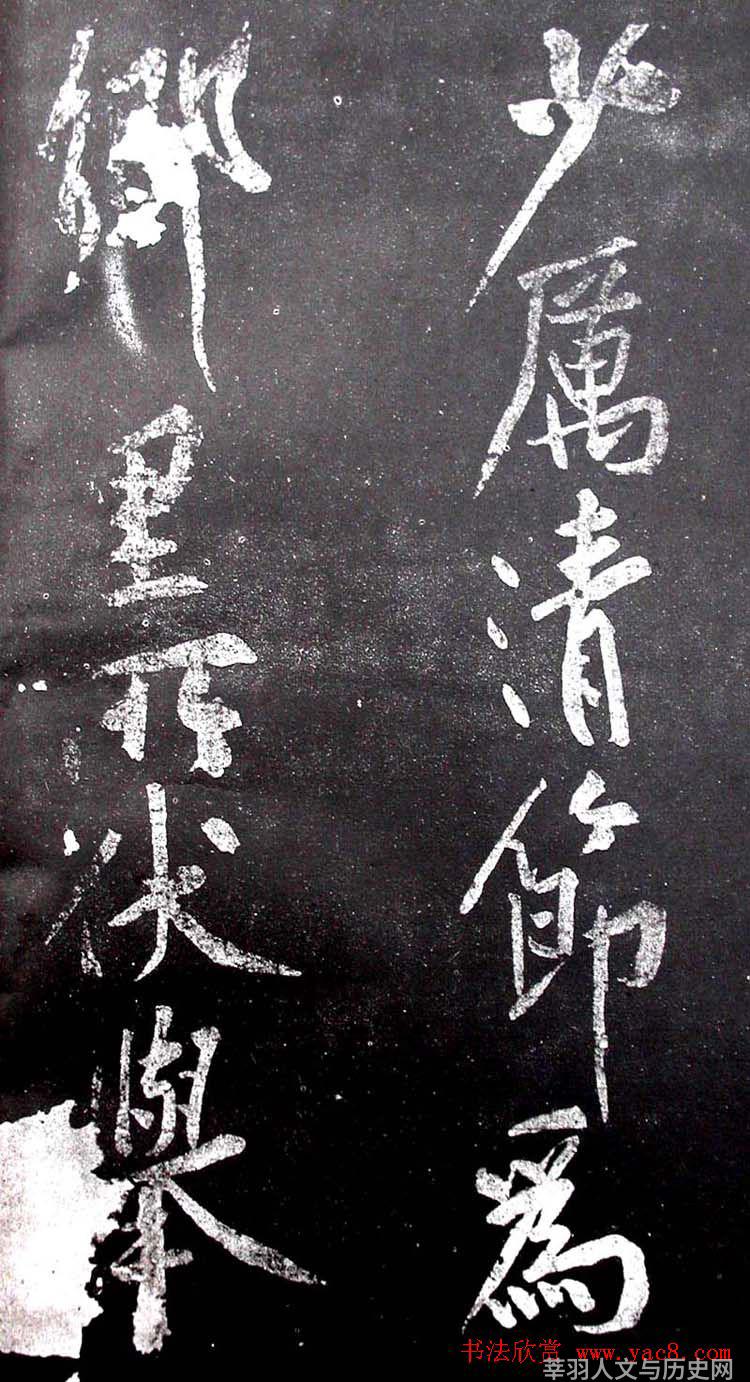 少厲清節為
鄉里所伏舉
书法欣赏 www.yac8.com
莘羽人文与历史网